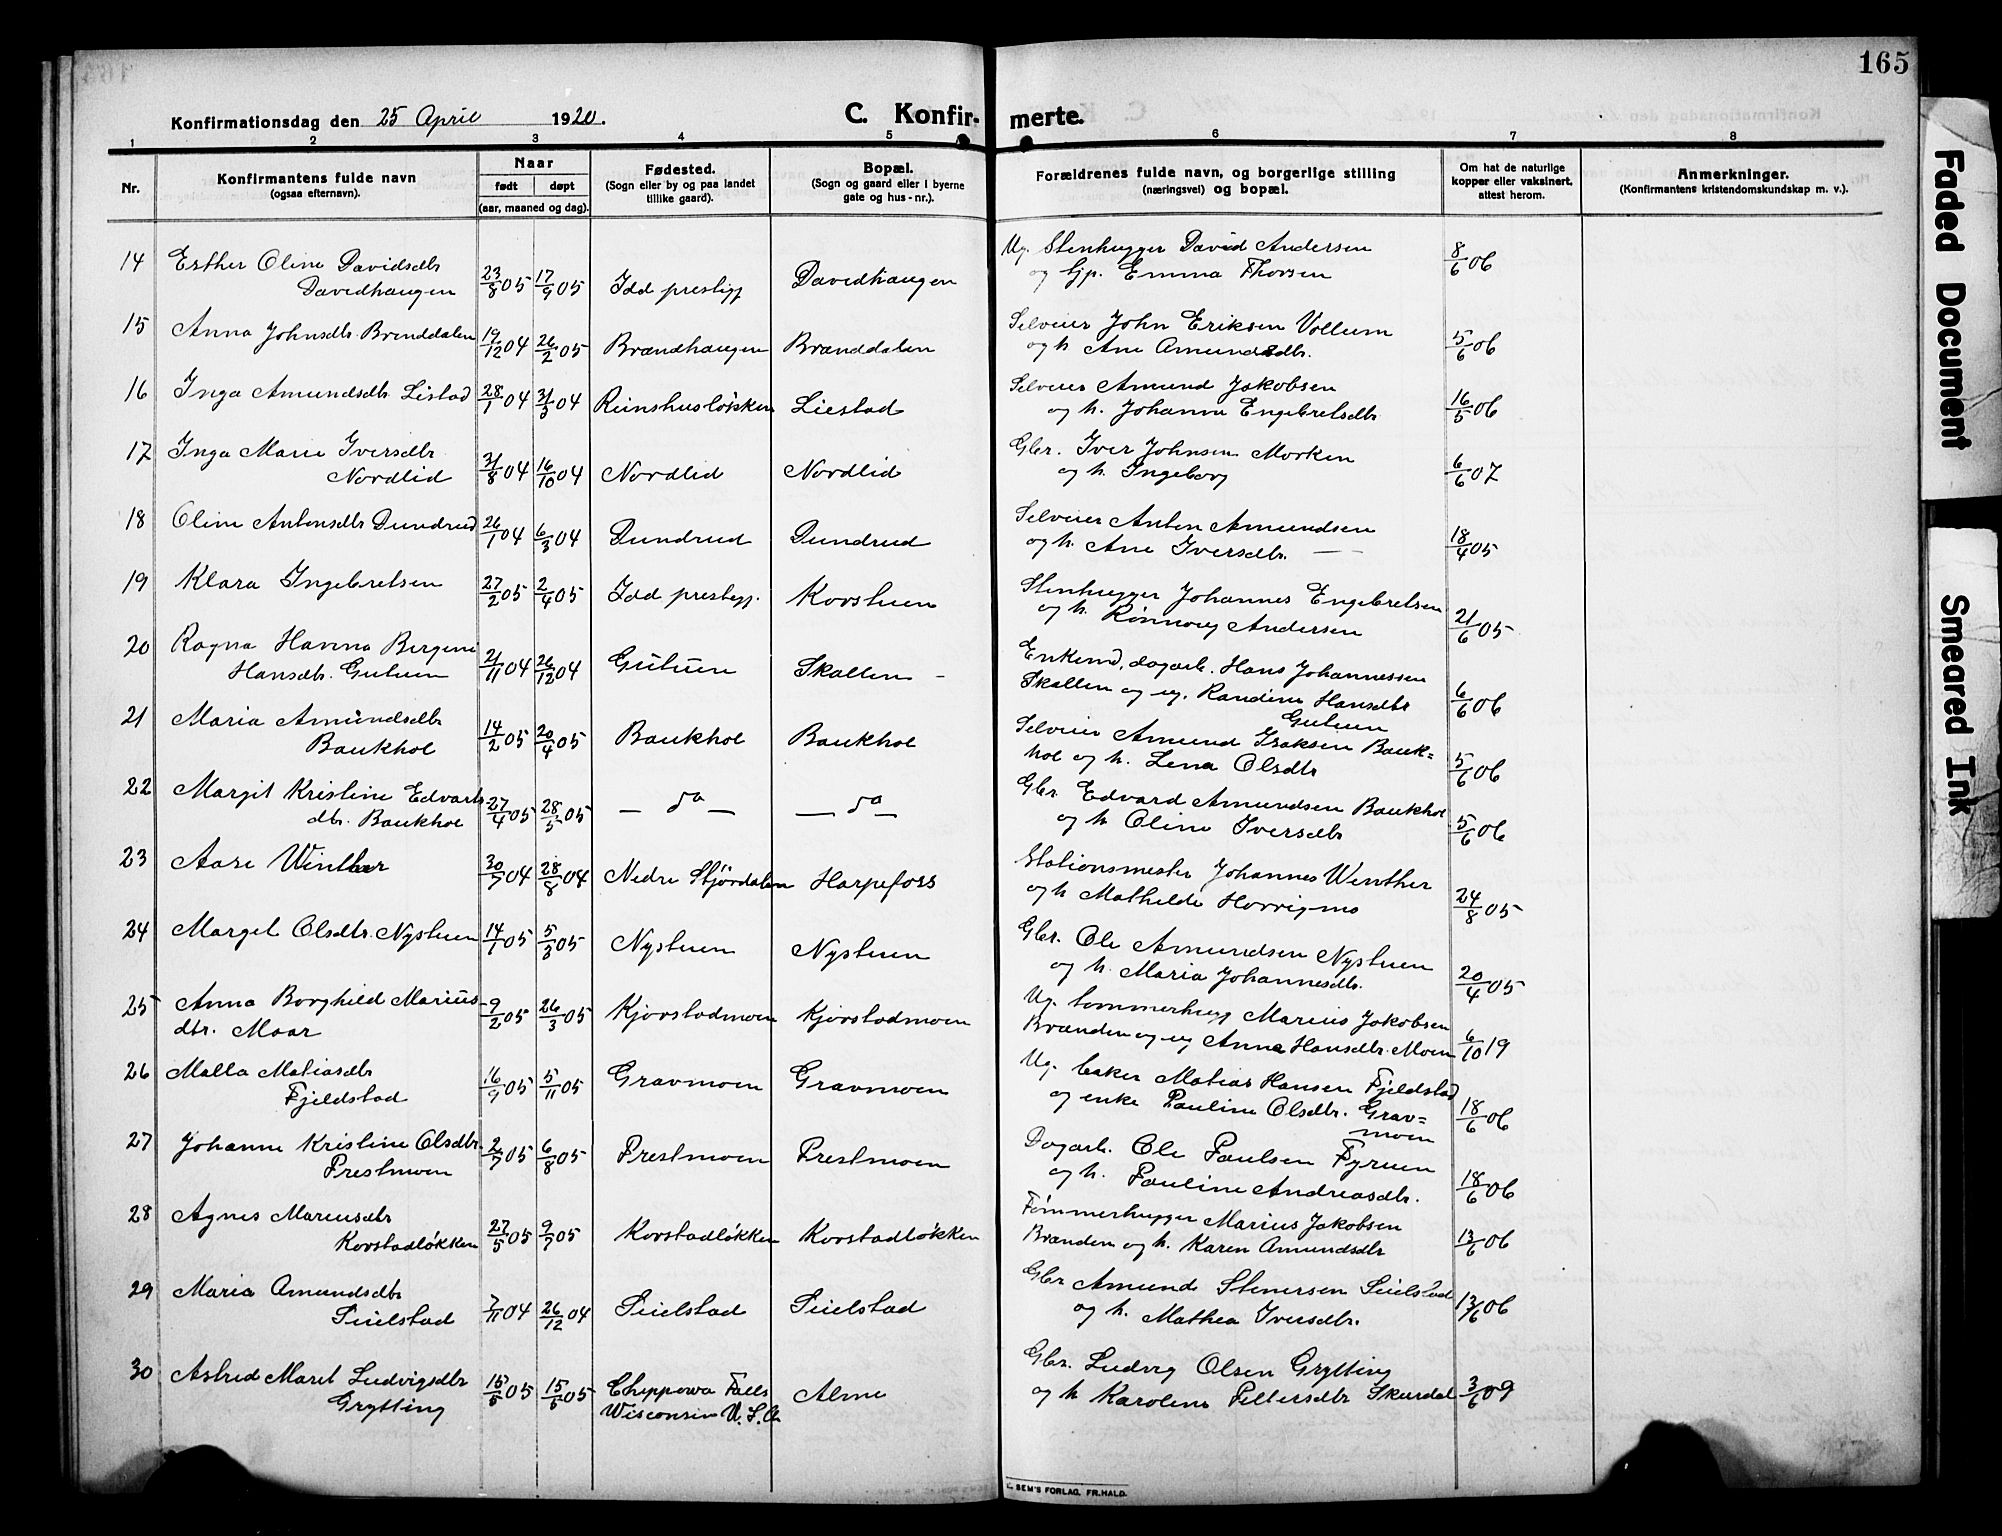 165
Konfirmationsdag den 25 April 1920.
C. Konfirmerte.
1 2 3 4 5 6 7 8
Nr.
Konfirmantens fulde navn
(ogsaa efternavn).
Naar
født døpt
(aar, maaned og dag).
Fødested.
(Sogn eller by og paa landet
tillike gaard).
Bopæl.
(Sogn og gaard eller i byerne
gate og hus-nr.).
Forældrenes fulde navn, og borgerlige stilling
(næringsvei) og bopæl.
Om hat de naturlige
kopper eller vaksinert,
attest herom.
Anmerkninger.
(Konfirmantens kristendomskundskap m. v.).
14 Esther Oline Davidsdtr
Davidhaugen 23/8 05 17/9 05 Idd prestigj Davidhaugen
Ug. Stenhugger David Andersen
og Gjp. Emma Thorsen 8/6 06
15 Anna Johnsdtr Brenddalen 19/12 04 26/2 05 Brændhaugen Brænddalen
Selveier John Eriksen Vollum
og h. Ane Amundsdtr. 5/6 06
16 Inga Amundsdtr Listad 28/1 04 31/3 04 Reinshusløkken Liestad
Selveier Amund Jakobsen
og h. Johanne Engebretsdtr 16/5 06
17 Inga Marie Iversdtr
Nordlid 31/8 04 16/10 04 Nordlid Nordlid
Gbr. Iver Johnsen Morken
og h. Ingeborg 6/6 07
18 Oline Antonsdtr Dundrud 26/1 04 6/3 04 Dundrud Dundrud
Selveier Anton Amundsen
og h. Ane Iversdtr. — — 18/4 05
19 Klara Ingebretsen 27/2 05 2/4 05 Idd prestegj. Korstuen
Stenhugger Johannes Engebretsen
og h. Rønnoug Andersen 21/6 05
20 Ragna Hanna Bergine
Hansdtr. Gutuen 21/11 04 26/12 04 Gutuen Skallen
Enkemd, dagarb. Hans Johannessen
Skallen og ug. Randine Hansdtr
Gutuen 6/6 06
21 Maria Amundsdtr
Baukhol 14/2 05 20/4 05 Baukhol Baukhol
Selveier Amund Isaksen Bauk=
hol og h. Lena Olsdtr 5/6 06
22 Margit Kristine Edvarts
dtr. Baukhol 27/4 05 28/5 05 — do — — do —
Gbr. Edvard Amundsen Baukhol
og h Oline Iversdtr 5/6 06
23 Aase Winther 30/7 04 28/8 04 Nedre Stjördalen Harpefoss
Stationsmester Johannes Winther
og h Mathilde Horrigmo 24/8 05
24 Margit Olsdtr. Nystuen 14/1 05 5/3 05 Nystuen Nystuen
Gbr. Ole Amundsen Nystuen
og h. Maria Johannesdtr. 20/4 05
25 Anna Borghild Marius
dtr. Moar 9/2 05 26/3 05 Kjorstadmoen Kjorstadmoen
Ug. tømmerhugg Marius Jakobsen
Brænden og ug Anne Hansdtr. Moen 6/10 19
26 Malla Matiasdtr
Fjeldstad 16/9 05 5/11 05 Gravmoen Gravmoen
Ug. baker Matias Hansen Fjeldstad
og enke Pauline Olsdtr. Grav=
moen 18/6 06
27 Johanne Kristine Olsdtr.
Prestmoen 2/7 05 6/8 05 Prestmoen Prestmoen
Dagarb. Ole Paulsen Fyruen
og h. Pauline Andreasdtr. 18/6 06
28 Agnes Mariusdtr
Korstadløkken 27/5 05 9/7 05 Korstadløkken Korstadløkken
Tømmerhugger Marius Jakobsen
Brænden og h. Karen Amundsdtr 13/6 06
29 Maria Amundsdtr
Seielstad 7/11 04 26/12 04 Seielstad Seielstad
Gbr Amund Stenersen Seielstad
og h. Mathea Iversdtr. 13/6 06
30 Astrid Marit Ludvigsdtr
Grytting 15/5 05 15/6 05 Chippewa Falls
Wisconsin U. S. A Alme
Gbr. Ludvig Olsen Grytting
og h Karoline Pettersdtr Skurdal 3/6 09
SEM'S FORLAG, FR.HALD.
Faded Document
Smeared Ink